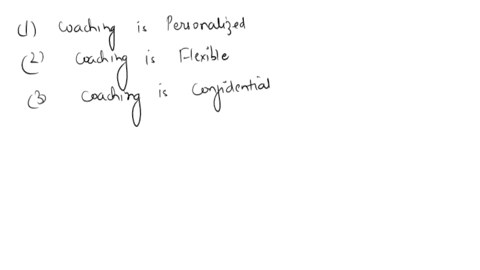 (1) Coaching is Personalized
(2) Coaching is Flexible
(3) Coaching is Confidential